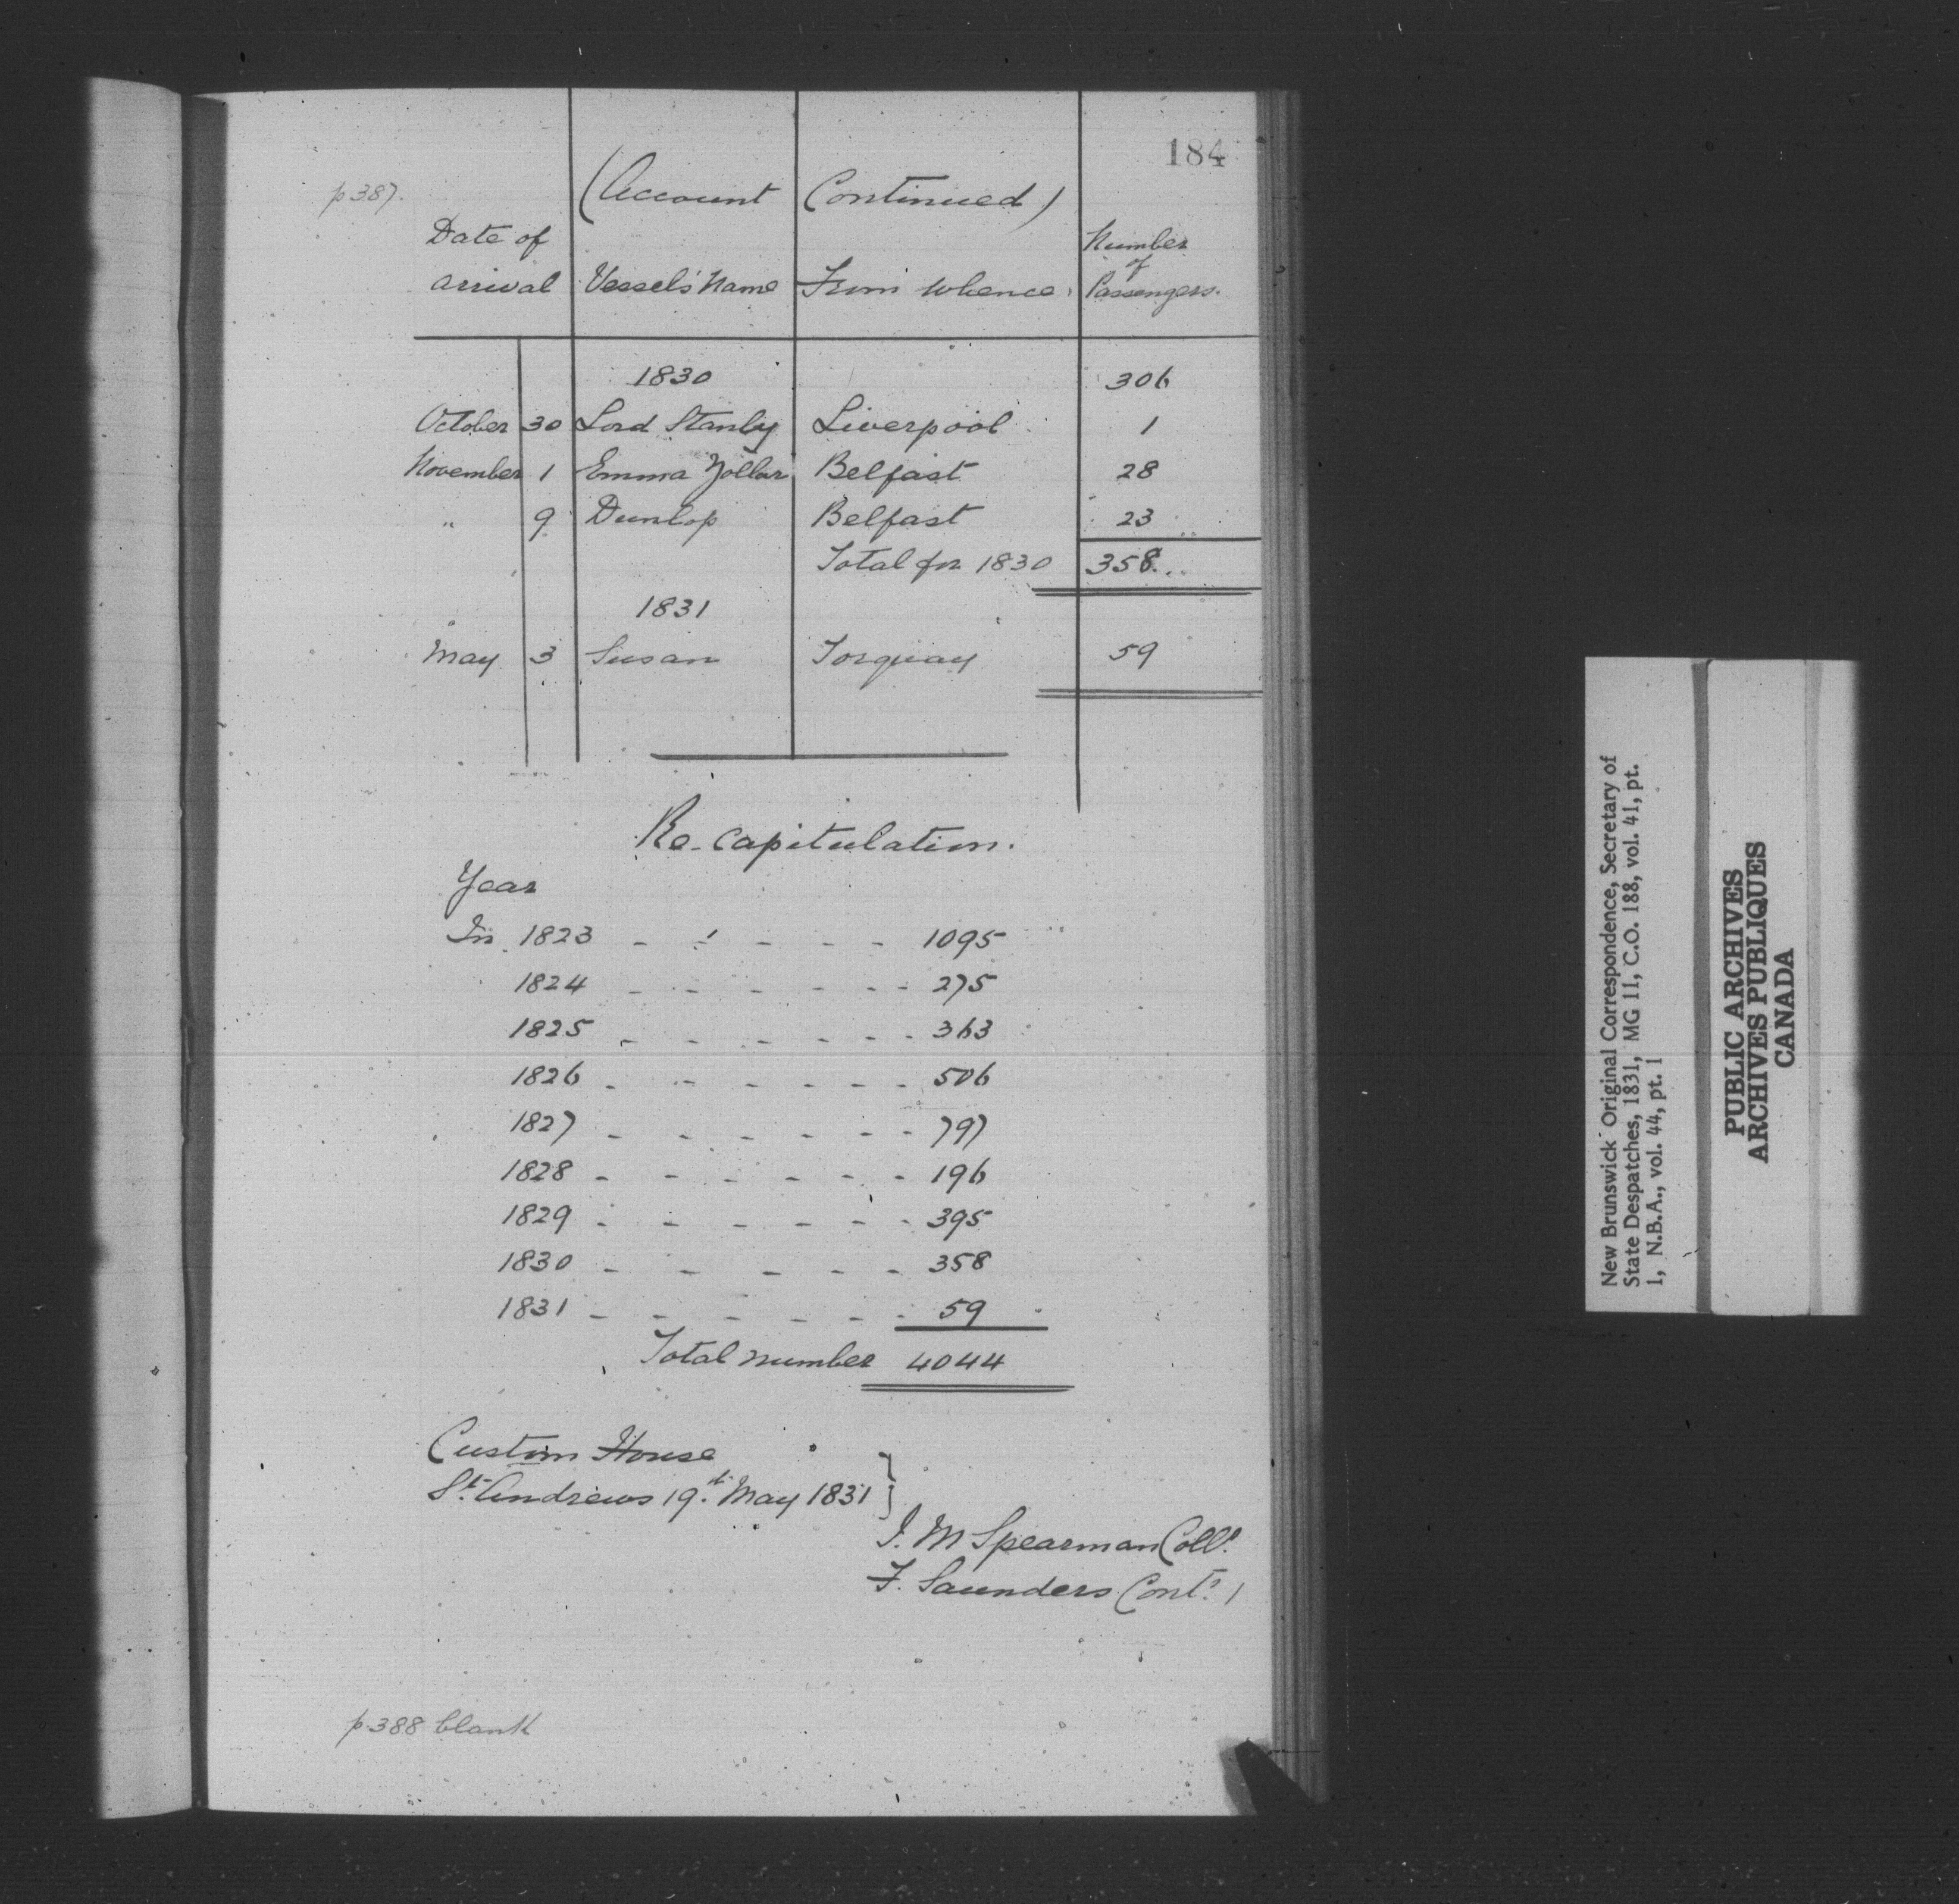 184
p 387.
(Account Continued)
Date of arrival Vessel's Name From whence Number of Passengers.
1830 306
October 30 Lord Stanly Liverpool 1
November 1 Emma Zollar Belfast 28
" 9 Dunlop Belfast 23
Total for 1830 358
1831
May 3 Susan Torquay 59
Re-capitulation.
Year
In 1823 - - - - - 1095
1824 - - - - - - 275
1825 - - - - - - 363
1826 - - - - - - 506
1827 - - - - - - 797
1828 - - - - - - 196
1829 - - - - - - 395
1830 - - - - - 358
1831 - - - - - - 59
Total number 4044
Custom House
St. Andrews 19th May 1831 }
J. M Spearman Collr.
F. Saunders Contr. )
p. 388 blank
New Brunswick Original Correspondence, Secretary of
State Despatches, 1831, MG 11, C.O. 188, vol. 41, pt.
1, N.B.A., vol. 44, pt. 1
PUBLIC ARCHIVES
ARCHIVES PUBLIQUES
CANADA